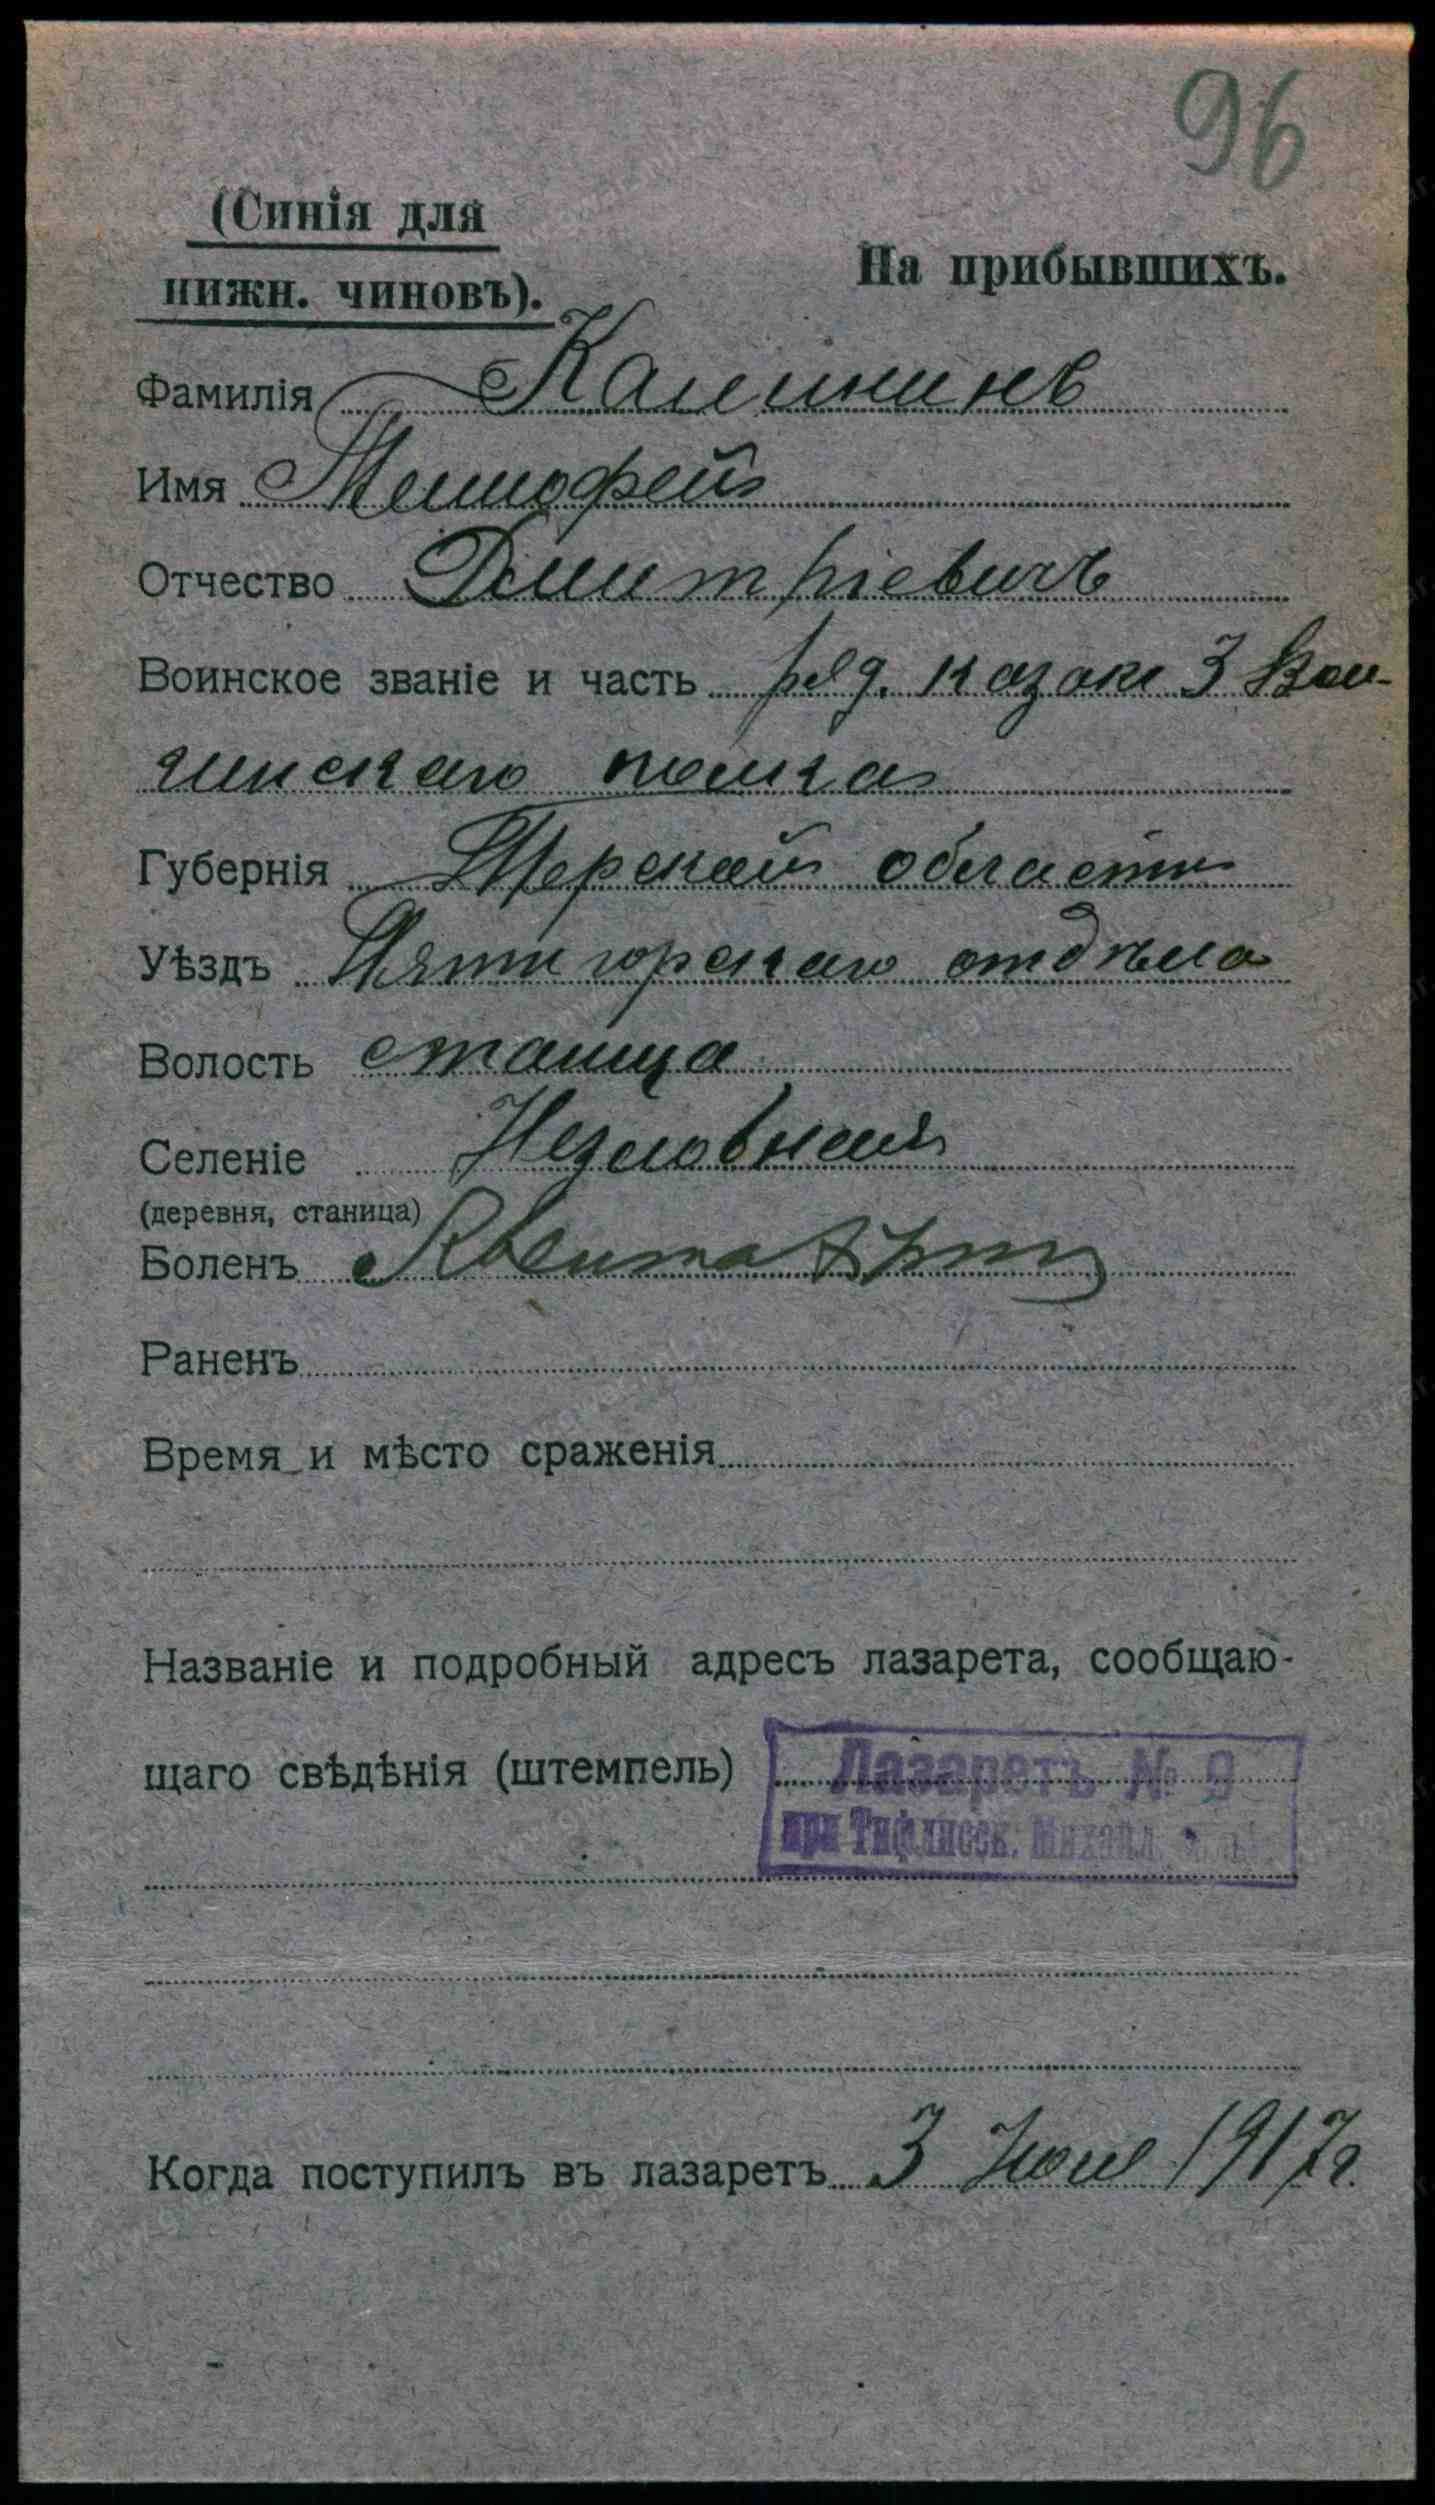 96
(Синія для
нижн. чиновъ).
На прибывшихъ.
Фамилія Калининъ
Имя Тимофей
Отчество Дмитріевичъ
Воинское званіе и часть ряд. казак 3 Вол-
гинскаго полка
Губернія Терской области
Уѣздъ Пятигорскаго отдѣла
Волость станица
Селеніе Незлобная
(деревня, станица)
Боленъ
Раненъ
Время и мѣсто сраженія
Названіе и подробный адресъ лазарета, сообщаю-
щаго свѣдѣнія (штемпель) Лазаретъ № 9
при Тифлисск. Михайл.
Когда поступилъ въ лазаретъ 3 1917г.